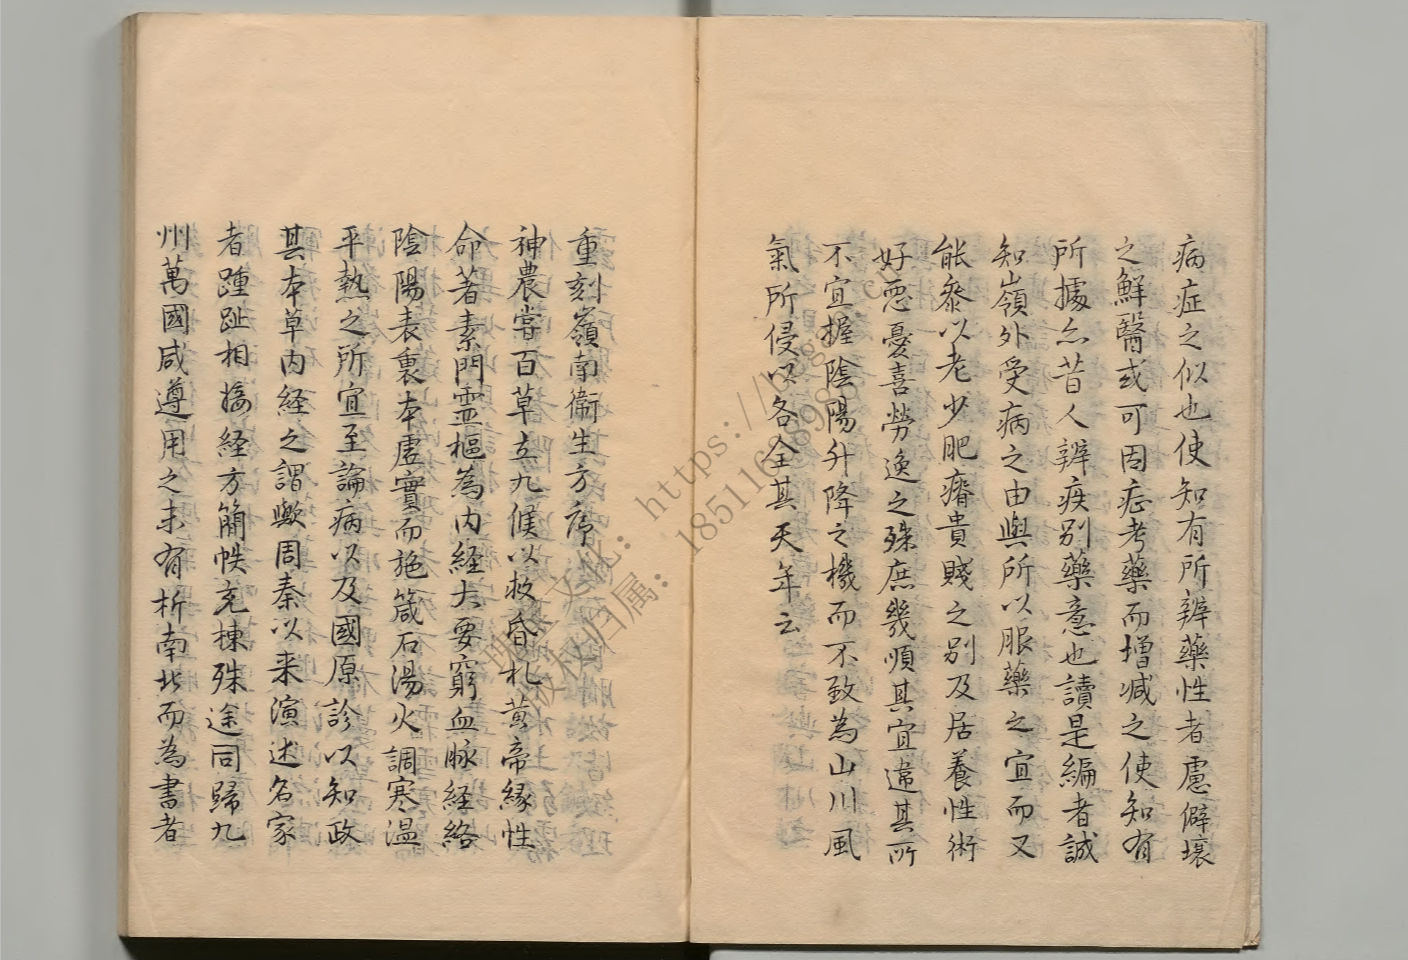 病症之似也使知有所辨藥性者慮僻壤
之鮮醫或可因症考藥而增減之使知有
所據尒昔人辨疾別藥意也讀是編者誠
知嶺外受病之由與所以服藥之宜而又
能叅以老少肥瘠貴賤之別及居養性術
好惡憂喜勞逸之殊庶幾順其宜違其所
不宜握陰陽升降之機而不致為山川風
氣所侵以各全其天年云
重刻嶺南衞生方序
神農嘗百草立九候以救昏札黄帝緣性
命著素門霊樞為内経大要窮血脉経絡
陰陽表裏本虛實而施箴石湯火調寒温
平熱之所宜至論病以及國原診以知政
其本草内経之謂歟周秦以来演述名家
者踵趾相接経方簡帙充棟殊途同歸九
州萬國咸遵用之未有析南北而為書者
https://